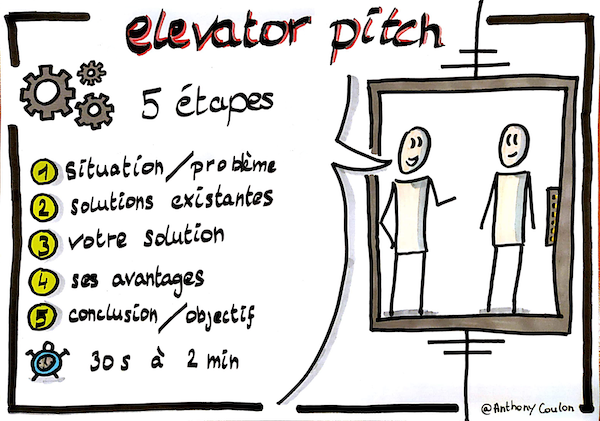 elevator pitch
5 étapes
1 situation/problème
2 solutions existantes
3 votre solution
4 ses avantages
5 conclusion/objectif
30s à 2 min
@Anthony Coulon